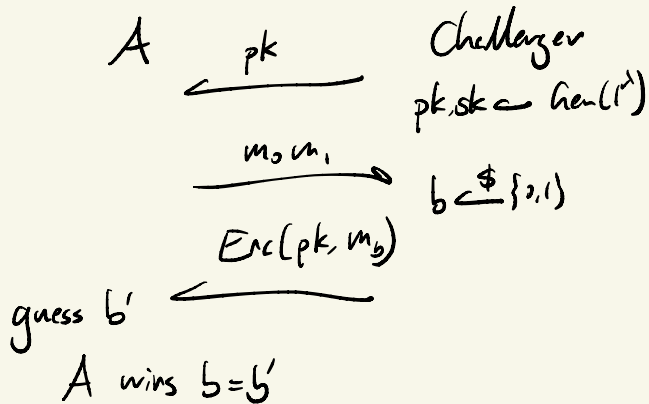 A Challenger
pk
pk,sk ← Gen(1^λ)
m₀ m₁
b ←$ {0,1}
Enc(pk, m_b)
guess b'
A wins b = b'